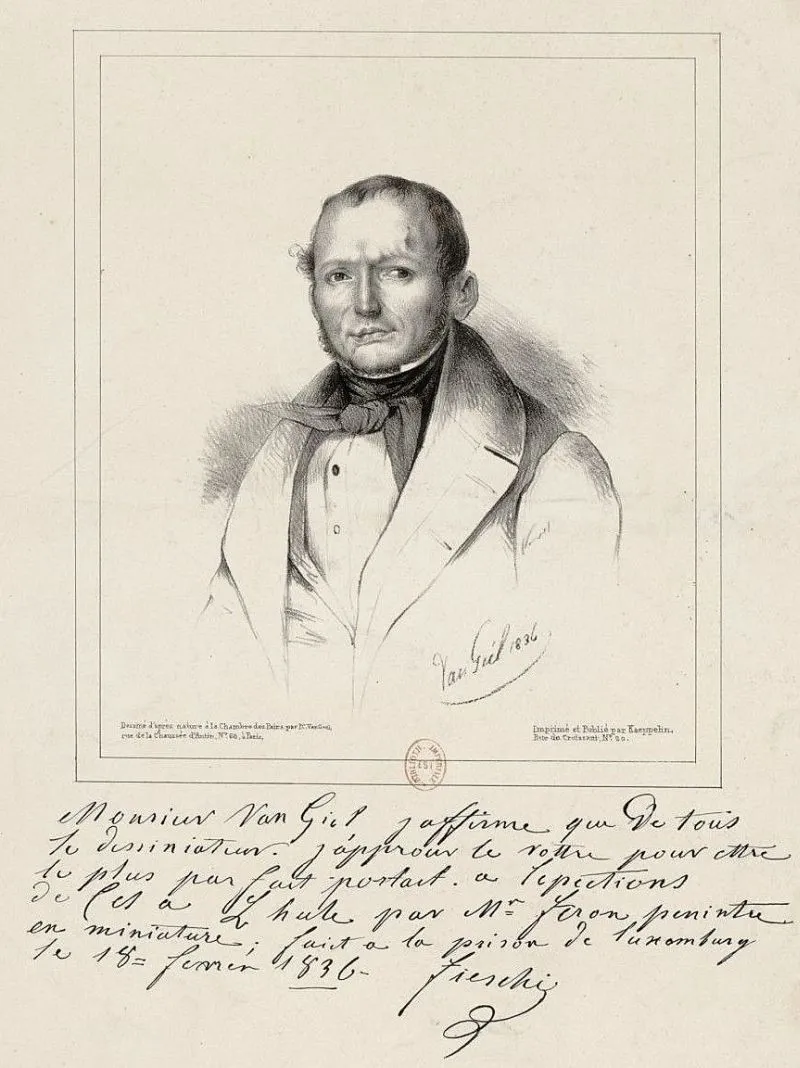 Van Giel 1836
Dessiné d'après nature à la Chambre des Pairs par Mr. Van Giel,
rue de la Chaussée d'Antin, No. 60, à Paris.
Imprimé et Publié par Kaeppelin,
Rue du Croissant, No. 20.
BIBLIOTH. IMPÉRIALE
Monsieur Van Giel jaffirme que De tous
le dessiniateur. j'approuv le vottre pour ettre
le plus par fait portait. a lepections
de Cel a Lhule par Mr. Feron penintre
en miniature; fait a la prison de luxemburg
le 18= fevrier 1836-
Fieschi